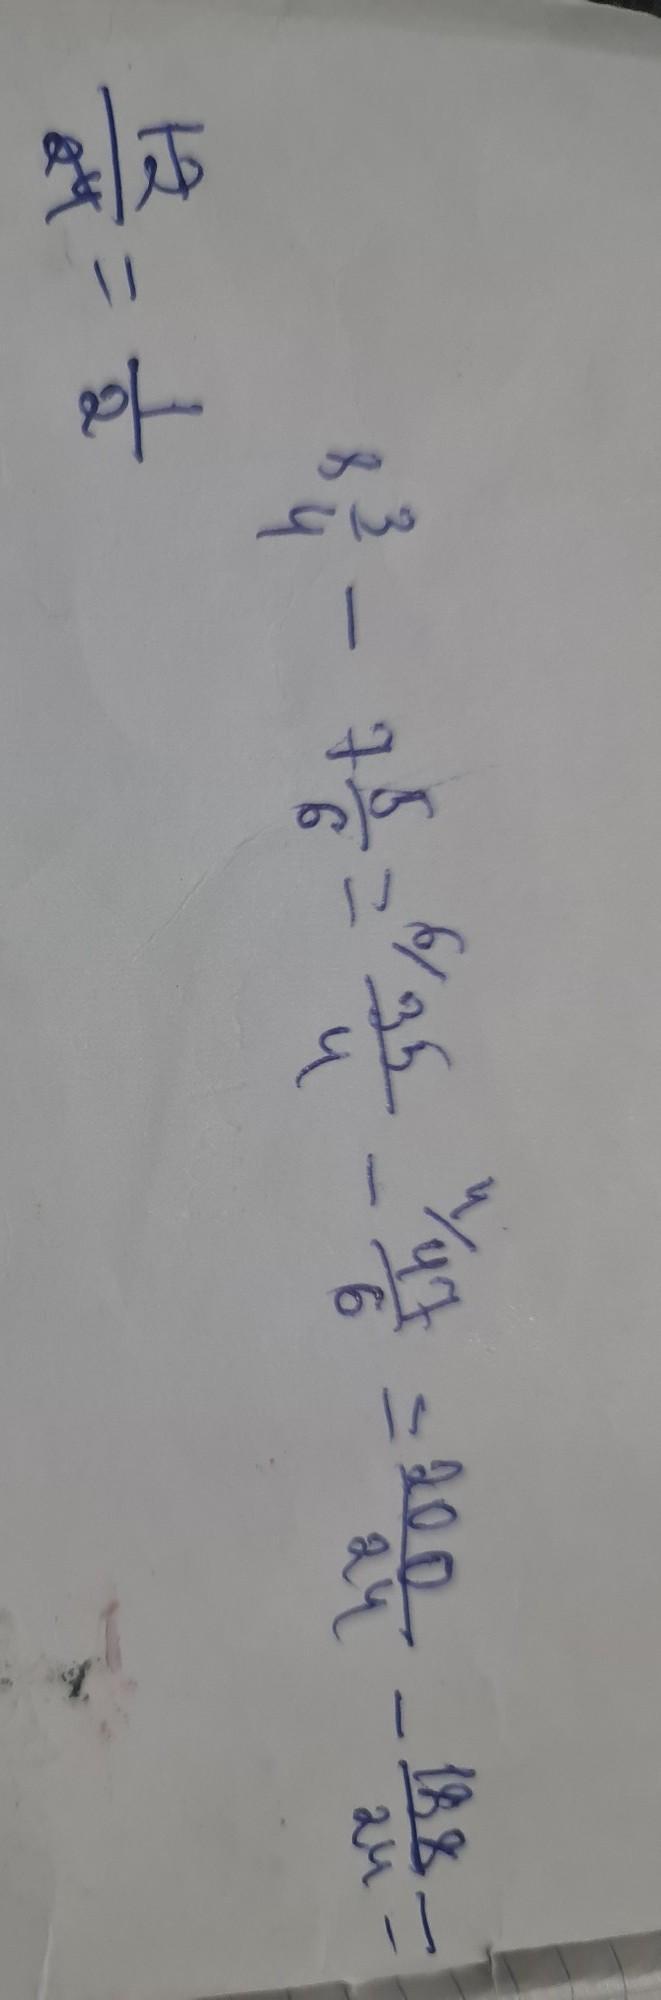 8 3/4 - 7 5/6 = 6/ 35/4 - 4/ 47/6 = 200/24 - 188/24 =
12/24 = 1/2